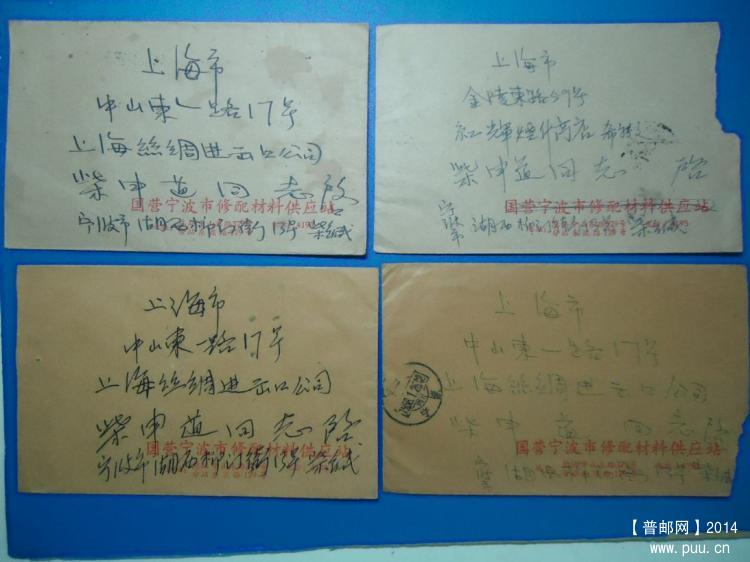 上海市
中山東一路17号
上海絲綢进出口公司
柴申道同志啟
国营宁波市修配材料供应站
宁波市湖西柳汀街13号柴缄
上海市
金陵東路59号
柴申道同志啟
国营宁波市修配材料供应站
上海市
中山東一路17号
上海絲綢进出口公司
柴申道同志啟
国营宁波市修配材料供应站
宁波市湖西柳汀街13号柴缄
上海市
中山東一路17号
上海絲綢进出口公司
柴申道同志啟
国营宁波市修配材料供应站
【普邮网】2014
www.puu.cn